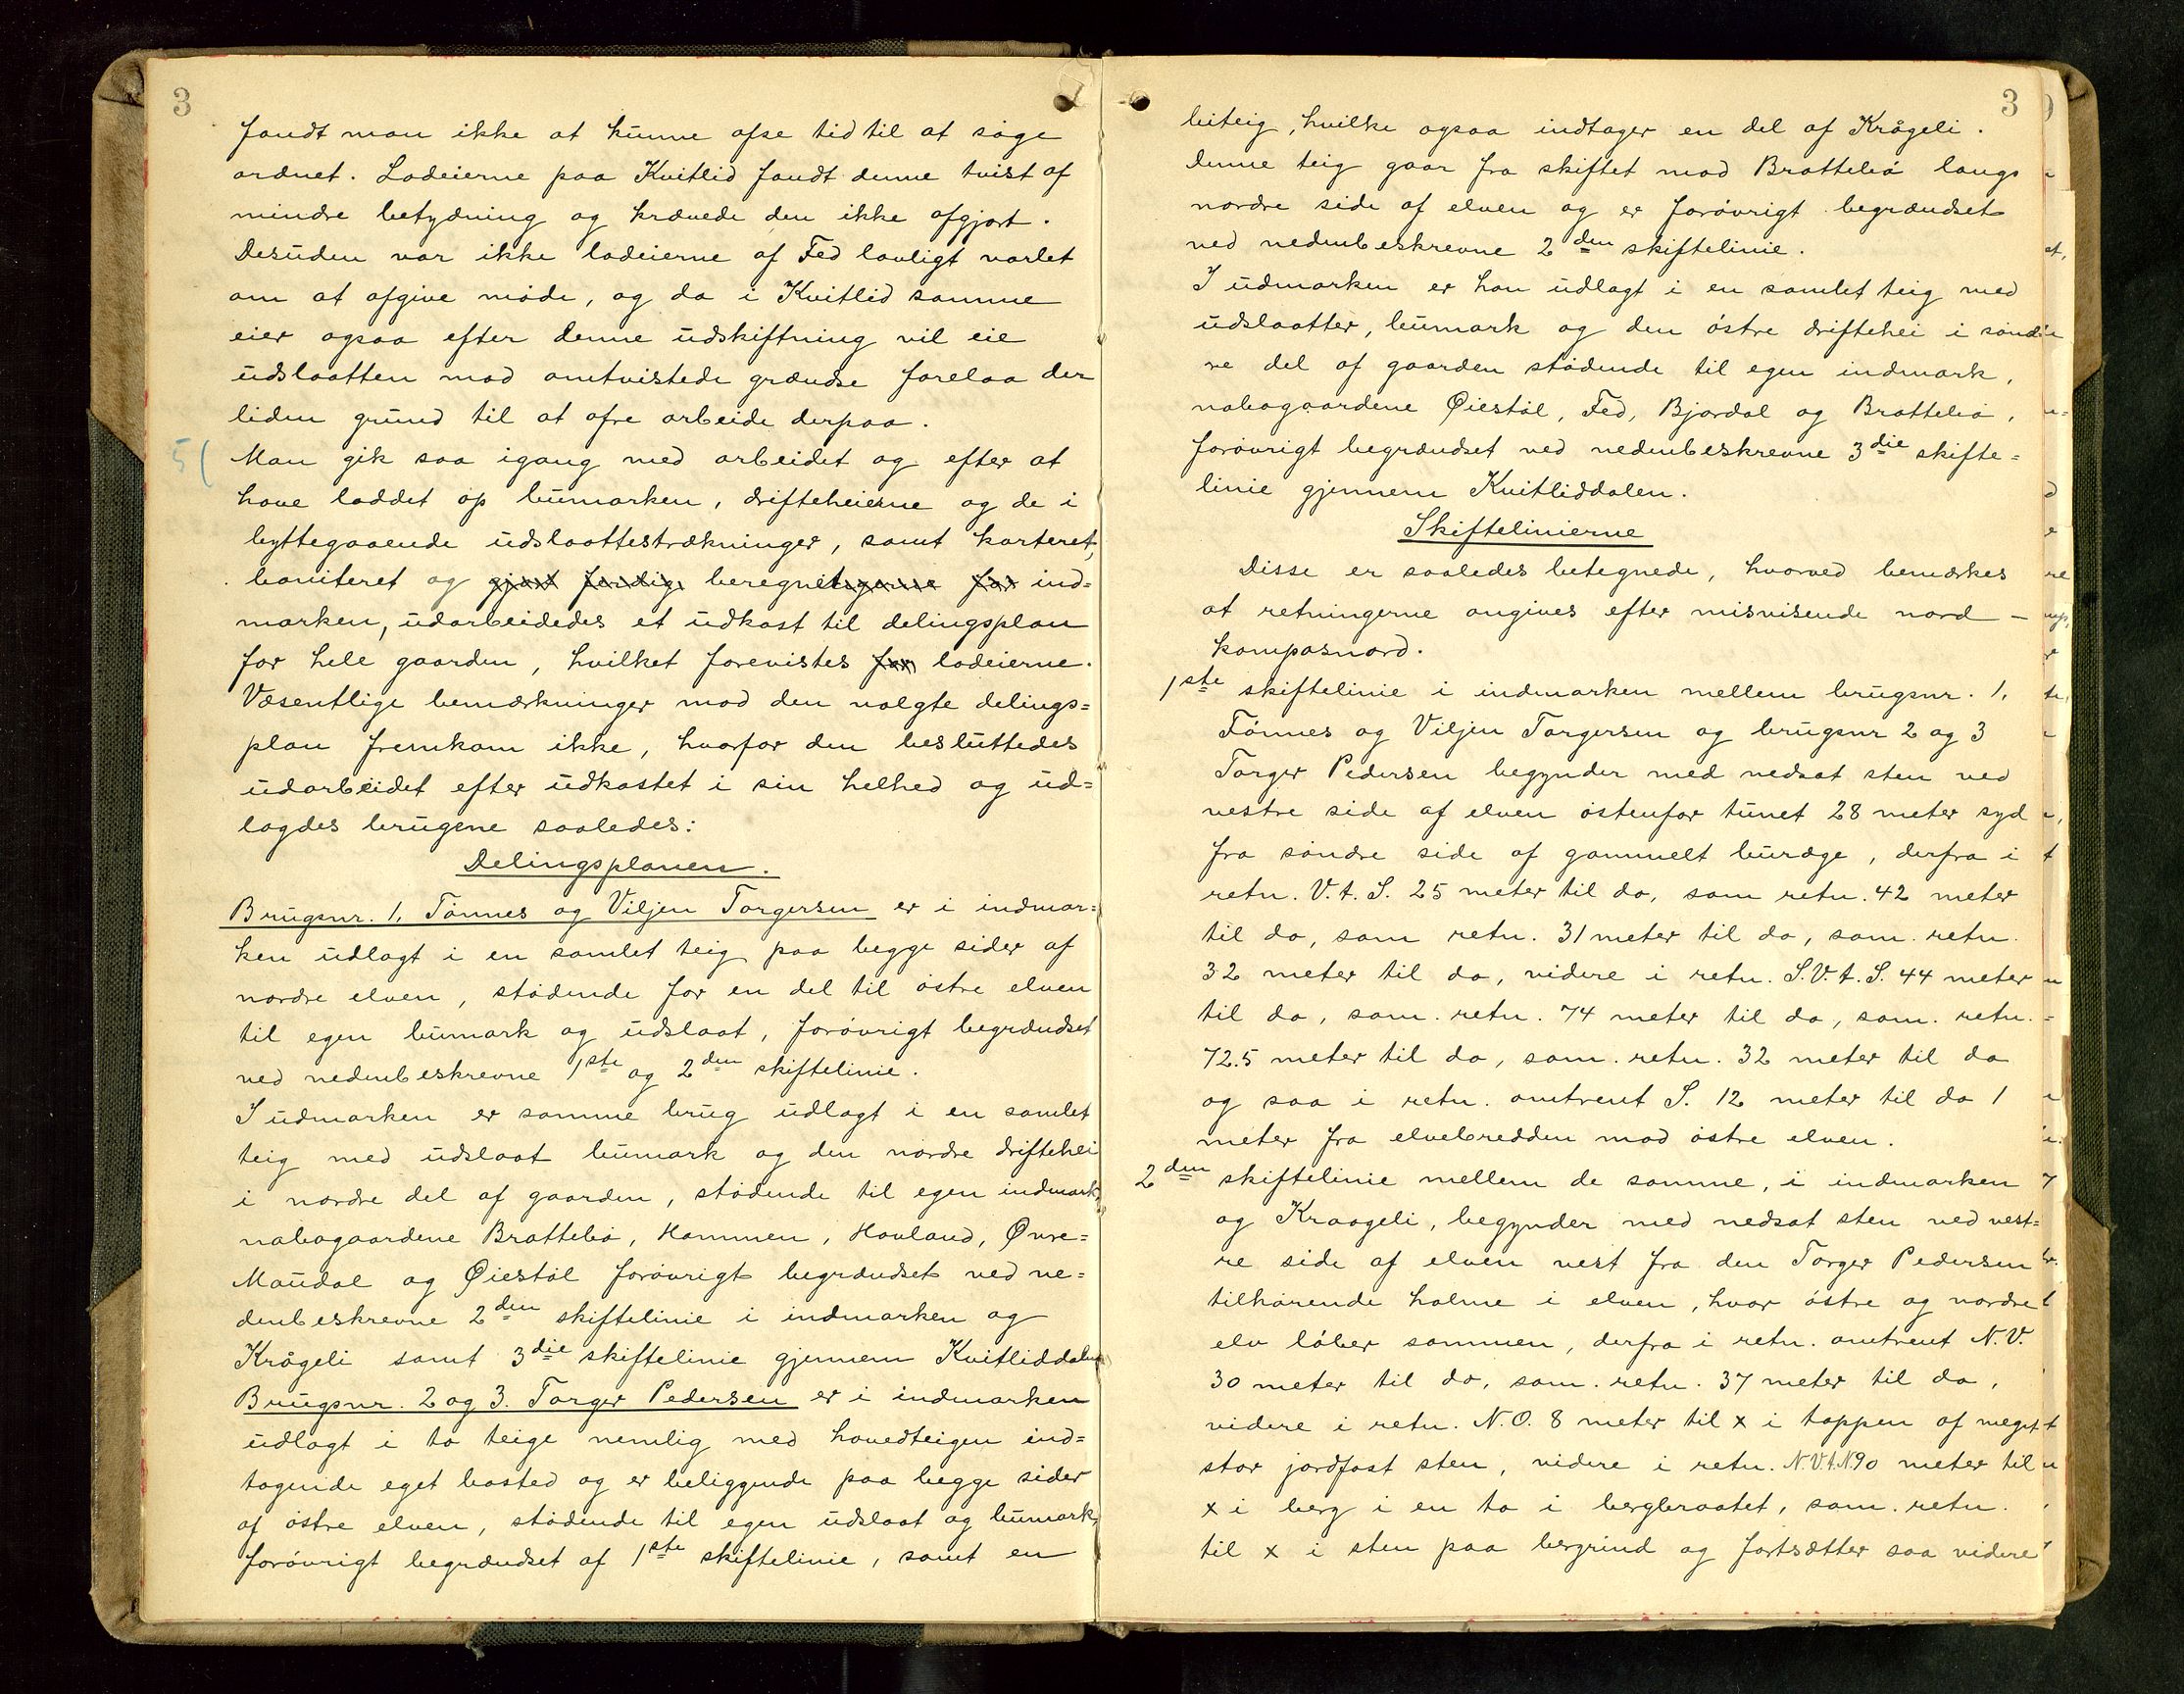 3
fandt man ikke at kunne afse tid til at søge
ordnet. Lodeierne paa Kvitlid fandt denne tvist af
mindre betydning og krævede den ikke afgjort.
Desuden var ikke lodeierne af Fed lovligt varlet
om at afgive møde, og da i Kvitlid samme
eier ogsaa efter denne udskiftning vil eie
udslaatten mod omtvistede grændse forelaa der
liden grund til at ofre arbeide derpaa.
5(
Man gik saa igang med arbeidet og efter at
have loddet op bumarken, drifteheierne og de i
byttegaaende udslaattestrækninger, samt karteret,
boniteret og gjort færdig beregningerne for ind=
marken, udarbeidedes et udkast til delingsplan
for hele gaarden, hvilket forevistes for lodeierne.
Væsentlige bemærkninger mod den valgte delings=
plan fremkom ikke, hvorfor den besluttedes
udarbeidet efter udkastet i sin helhed og ud=
lagdes brugene saaledes:
Delingsplanen.
Brugsnr. 1, Tønnes og Viljen Torgersen er i indmar=
ken udlagt i en samlet teig paa begge sider af
nordre elven, stødende for en del til østre elven
til egen bumark og udslaat, forøvrigt begrændset
ved nedenbeskrevne 1ste og 2den skiftelinie.
I udmarken er samme brug udlagt i en samlet
teig med udslaat bumark og den nordre driftehei
i nordre del af gaarden, stødende til egen indmark,
nabogaardene Brattebø, Hammen, Hovland, Øvre=
Maudal og Øiestøl forøvrigt begrændset ved ne=
denbeskrevne 2den skiftelinie i indmarken og
Krågeli samt 3die skiftelinie gjennem Kvitliddalen
Brugsnr. 2 og 3. Torger Pedersen er i indmarken
udlagt i to teige nemlig med hovedteigen ind=
tagende eget bosted og er beliggende paa begge sider
af østre elven, stødende til egen udslaat og bumark,
forøvrigt begrændset af 1ste skiftelinie, samt en
3
liteig, hvilke ogsaa indtager en del af Krågeli.
Denne teig gaar fra skiftet mod Brattebø langs
nordre side af elven og er forøvrigt begrændset
ved nedenbeskrevne 2den skiftelinie.
I udmarken er han udlagt i en samlet teig med
udslaatter, bumark og den østre driftehei i sønd
re del af gaarden stødende til egen indmark,
nabogaardene Øiestøl, Fed, Bjordal og Brattebø,
forøvrigt begrændset ved nedenbeskrevne 3die skifte=
linie gjennem Kvitliddalen.
Skiftelinierne
Disse er saaledes betegnede, hvorved bemærkes
at retningerne angives efter misvisende nord –
kompasnord.
1ste skiftelinie i indmarken mellem brugsnr. 1,
Tønnes og Viljen Torgersen og brugsnr 2 og 3
Torger Pedersen begynder med nedsat sten ved
vestre side af elven østenfor tunet 28 meter syd
fra søndre side af gammelt buræge, derfra i
retn. V. t. S. 25 meter til do, sam retn. 42 meter
til do, sam retn. 31 meter til do, sam. retn.
32 meter til do, videre i retn. S.V. t. S. 44 meter
til do, sam. retn. 74 meter til do, sam. retn.
72.5 meter til do, sam. retn. 32 meter til do
og saa i retn. omtrent S. 12 meter til do 1
meter fra elvebredden mod østre elven.
2den skiftelinie mellem de samme, i indmarken
og Kraageli, begynder med nedsat sten ved vest=
re side af elven vest fra den Torger Pedersen
tilhørende holme i elven, hvor østre og nordre
elv løber sammen, derfra i retn. omtrent N.V.
30 meter til do, sam. retn. 37 meter til do,
videre i retn. N.O. 8 meter til x i toppen af meget
stor jordfast sten, videre i retn. N.V.t.N. 90 meter til
x i berg i en to i bergbraatet, sam. retn.
til x i sten paa bergrind og fortsætter saa videre